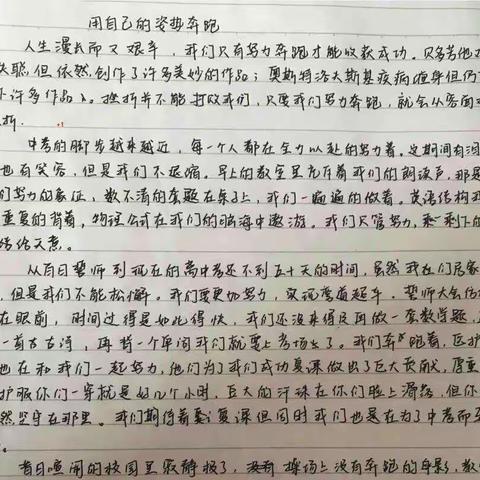 用自己的姿势奔跑
人生漫长而又艰辛，我们只有努力奔跑才能收获成功。贝多芬他双
失聪，但依然创作了许多美妙的作品；奥斯特洛夫斯基疾病缠身但仍
下许多作品。挫折并不能打败我们，只要我们努力奔跑，就会从容面对
挫折。
中考的脚步越来越近，每一个人都在全力以赴的努力着。这期间有泪
也有笑容，但是我们不退缩。早上的教室里充斥着我们的朗读声，那是
们努力的象征，数不清的套题在桌上，我们一遍遍的做着。英语结构我
重复的背着，物理公式在我们的脑海中遨游。我们只管努力，剩下的
结给天意。
从百日誓师到现在的离中考还不到五十天的时间，虽然我在们居家
，但是我们不能松懈。我们要更加努力，实现弯道超车。誓师大会仍
在眼前，时间过得是如此得快，我们还没来得及再做一套数学题，
一首古古诗，再背一个单词我们就要上考场了。我们奔跑着，医护
也在和我们一起努力，他们为了我们成功复课做出了巨大贡献，厚重
护服你们一穿就是好几个小时，巨大的汗珠在你们脸上滑落，但你
然坚守在那里。我们期待着复课但同时我们也是在为了中考而
。
昔日喧闹的校园里寂静极了，没有操场上没有奔跑的身影，教